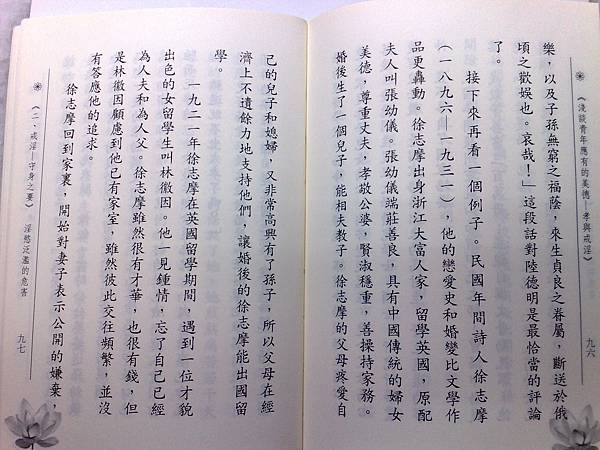 《淺談青年應有的美德—孝與戒淫》
九六
樂，以及子孫無窮之福蔭，來生貞良之眷屬，斷送於俄
頃之歡娛也。哀哉！」這段話對陸德明是最恰當的評論
了。
接下來再看一個例子。民國年間詩人徐志摩
（一八九六—一九三一），他的戀愛史和婚變比文學作
品更轟動。徐志摩出身浙江大富人家，留學英國，原配
夫人叫張幼儀。張幼儀端莊善良，具有中國傳統的婦女
美德，尊重丈夫，孝敬公婆，賢淑穩重，善操持家務。
婚後生了一個兒子，能相夫教子。徐志摩的父母疼愛自
己的兒子和媳婦，又非常高興有了孫子，所以父母在經
濟上不遺餘力地支持他們，讓婚後的徐志摩能出國留
學。
一九二一年徐志摩在英國留學期間，遇到一位才貌
出色的女留學生叫林徽因。他一見鍾情，忘了自己已經
為人夫和為人父。徐志摩雖然很有才華，也很有錢，但
是林徽因顧慮到他已有家室，雖然彼此交往頻繁，並沒
有答應他的追求。
徐志摩回到家裏，開始對妻子表示公開的嫌棄，
《二、戒淫—守身之要》 淫慾泛濫的危害
九七